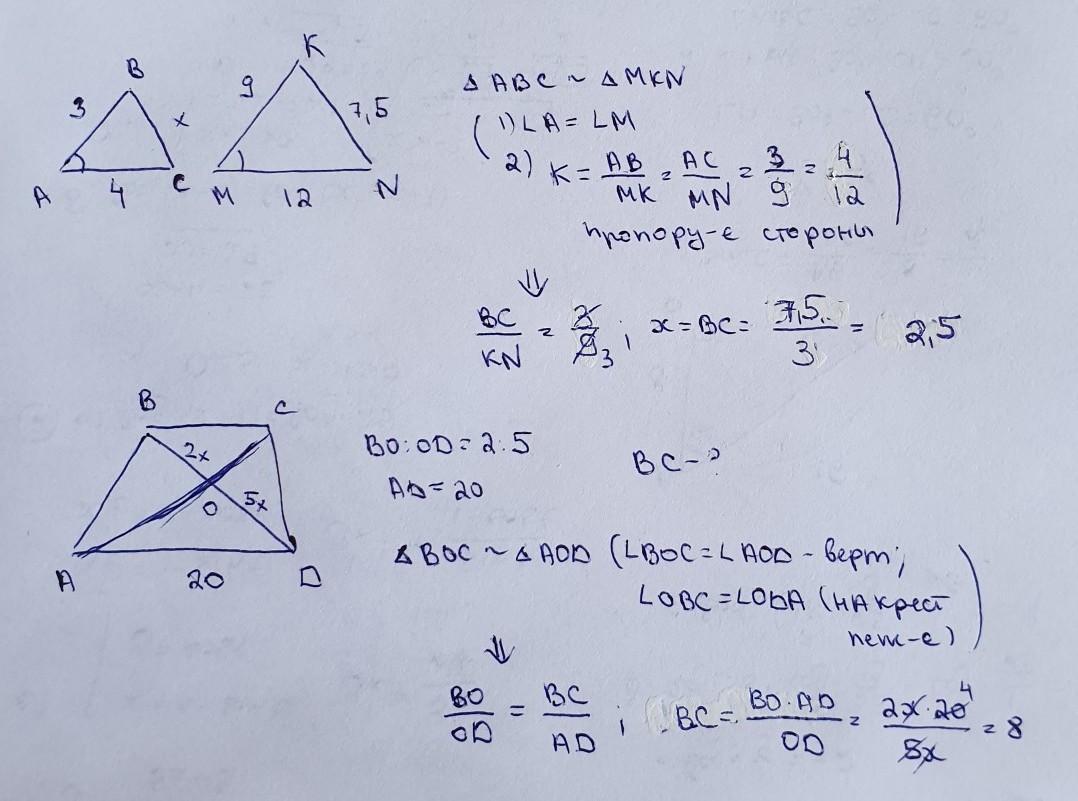 B
K
3
x
9
7,5
A
4
C
M
12
N
Δ ABC ~ Δ MKN
( 1) ∠A = ∠M
2) K = AB/MK = AC/MN = 3/9 = 4/12 )
пропору-е стороны
⇓
BC/KN = 3/9 3 ; x = BC = 7,5/3 = 2,5
B
C
2x
O
5x
A
20
D
BO:OD = 2:5
AD = 20
BC - ?
Δ BOC ~ Δ AOD (∠BOC = ∠AOD - верт;
∠OBC = ∠ODA (накрест
леж-е) )
⇓
BO/OD = BC/AD ; BC = BO·AD/OD = 2x·20 4/5x = 8